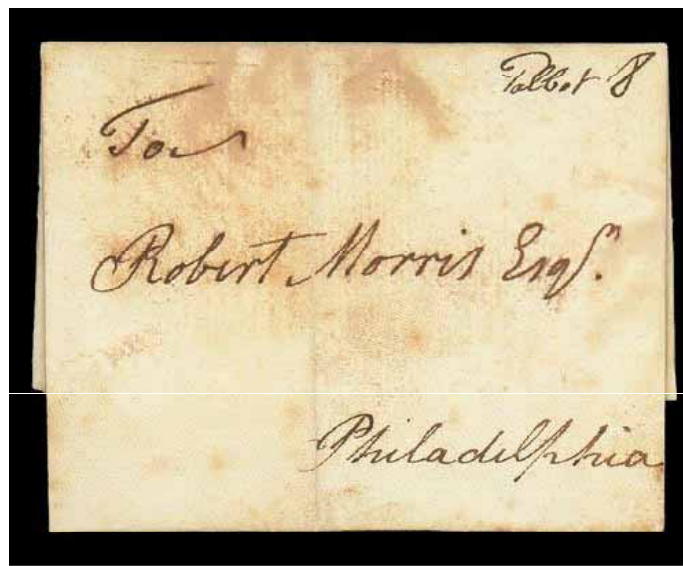 Talbot 8
To
Robert Morris Esqr.
Philadelphia